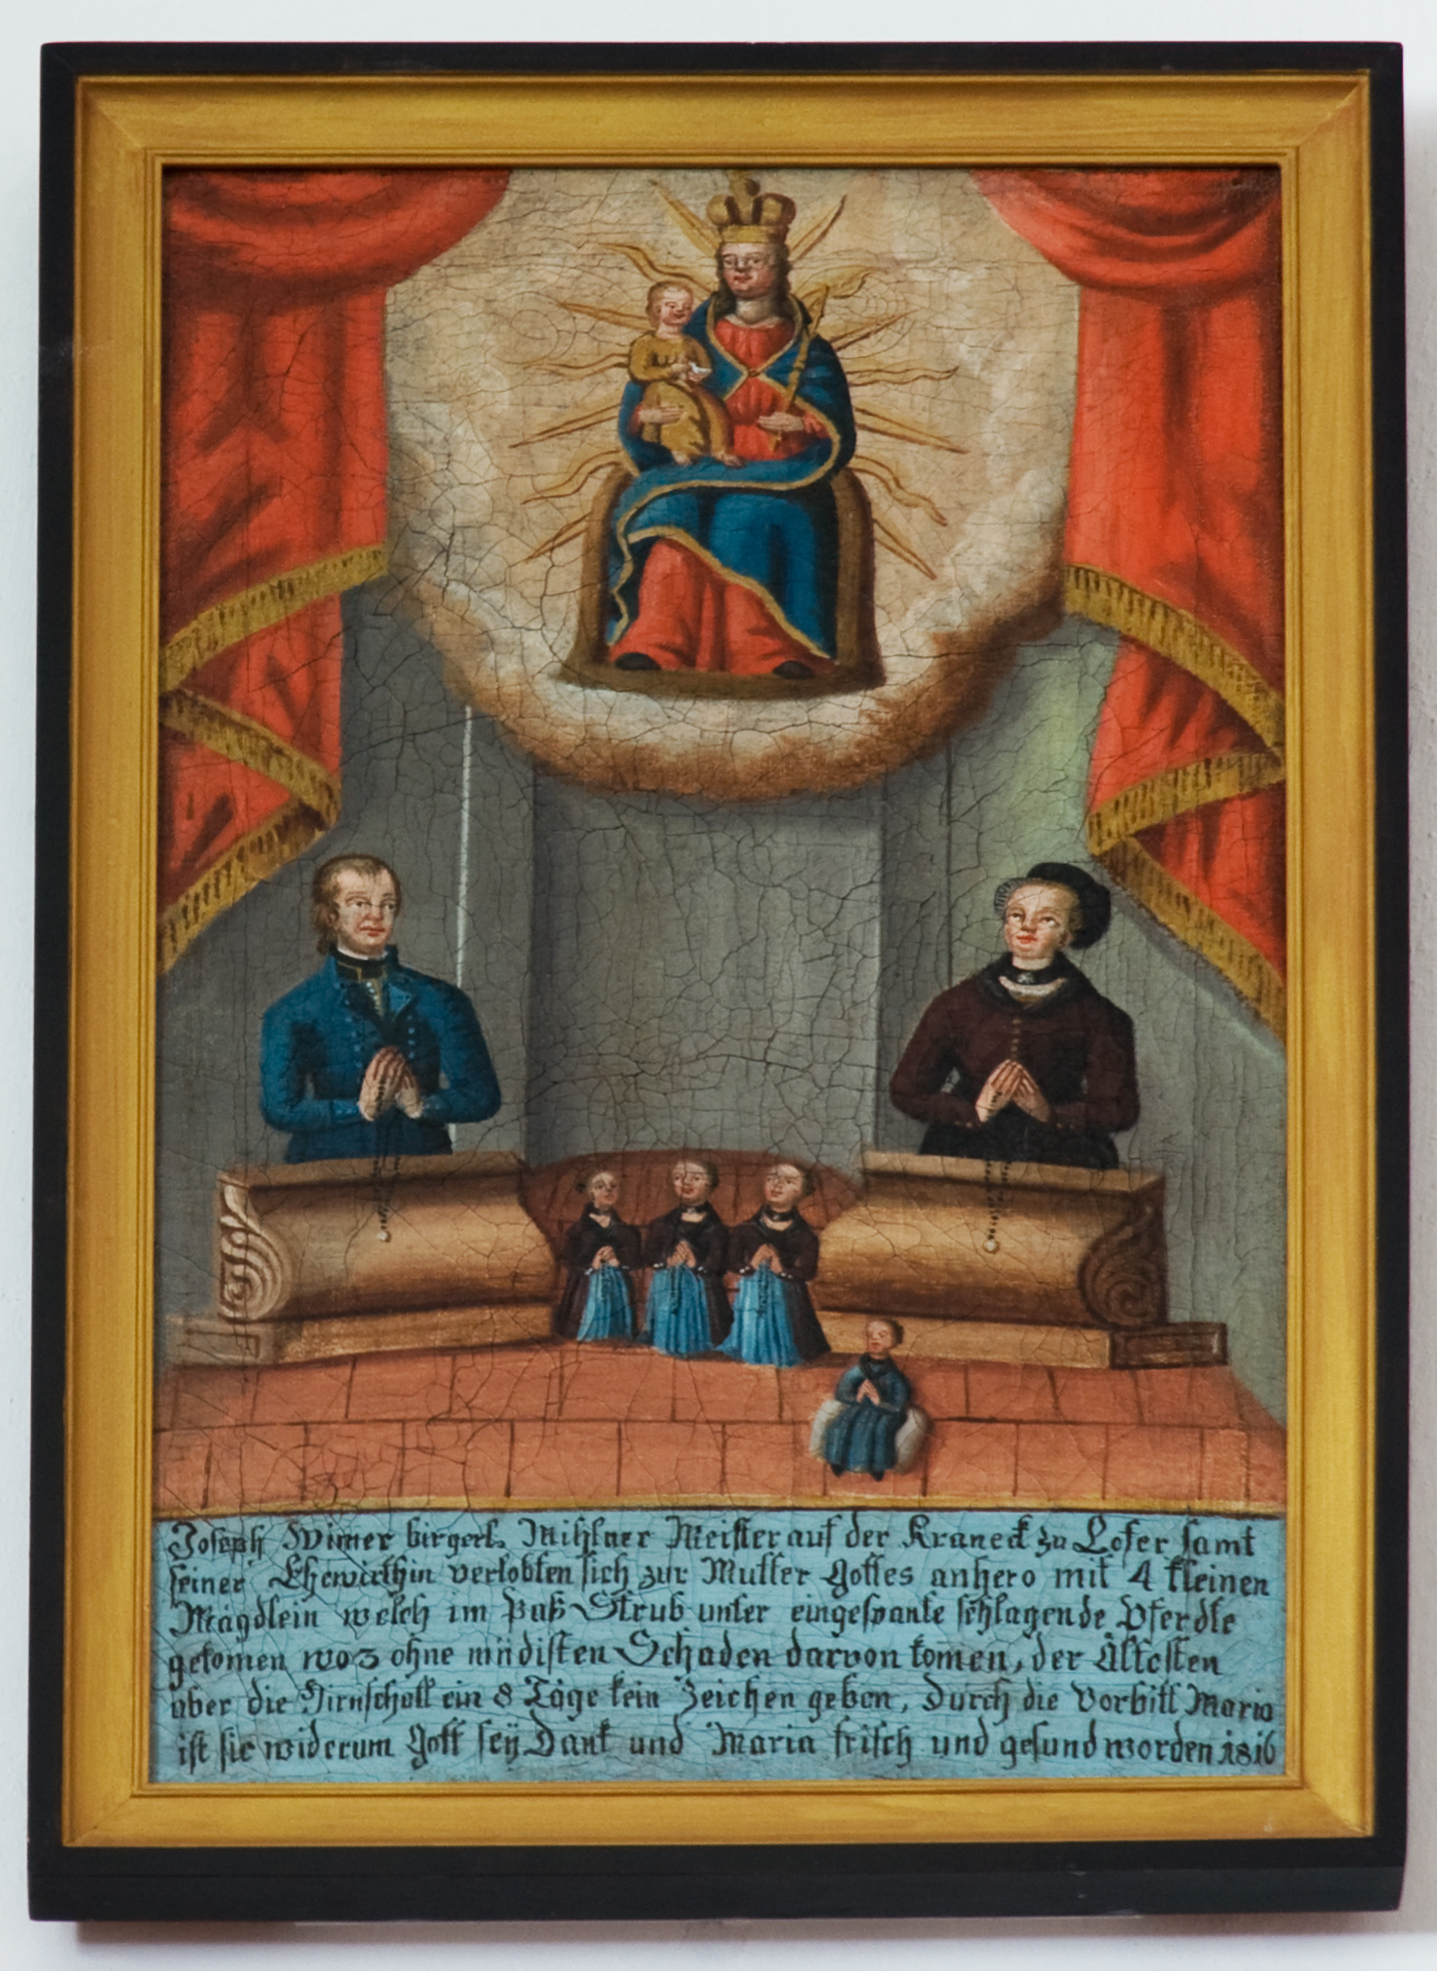 Joseph Wimer birgerl. Mihlner Meister auf der Kraneck zu Lofer samt
seiner Ehewirthin verlobten sich zur Mutter Gottes anhero mit 4 kleinen
Mägdlein welch im Paß Strub unter eingespante schlagende Pferdte
gekomen woz ohne mindisten Schaden darvon komen, der Ältesten
aber die Hirnschall ein 8 Täge kein Zeichen geben, Durch die Vorbitt Maria
ist sie widerum Gott seÿ Dank und Maria frisch und gesund worden 1816